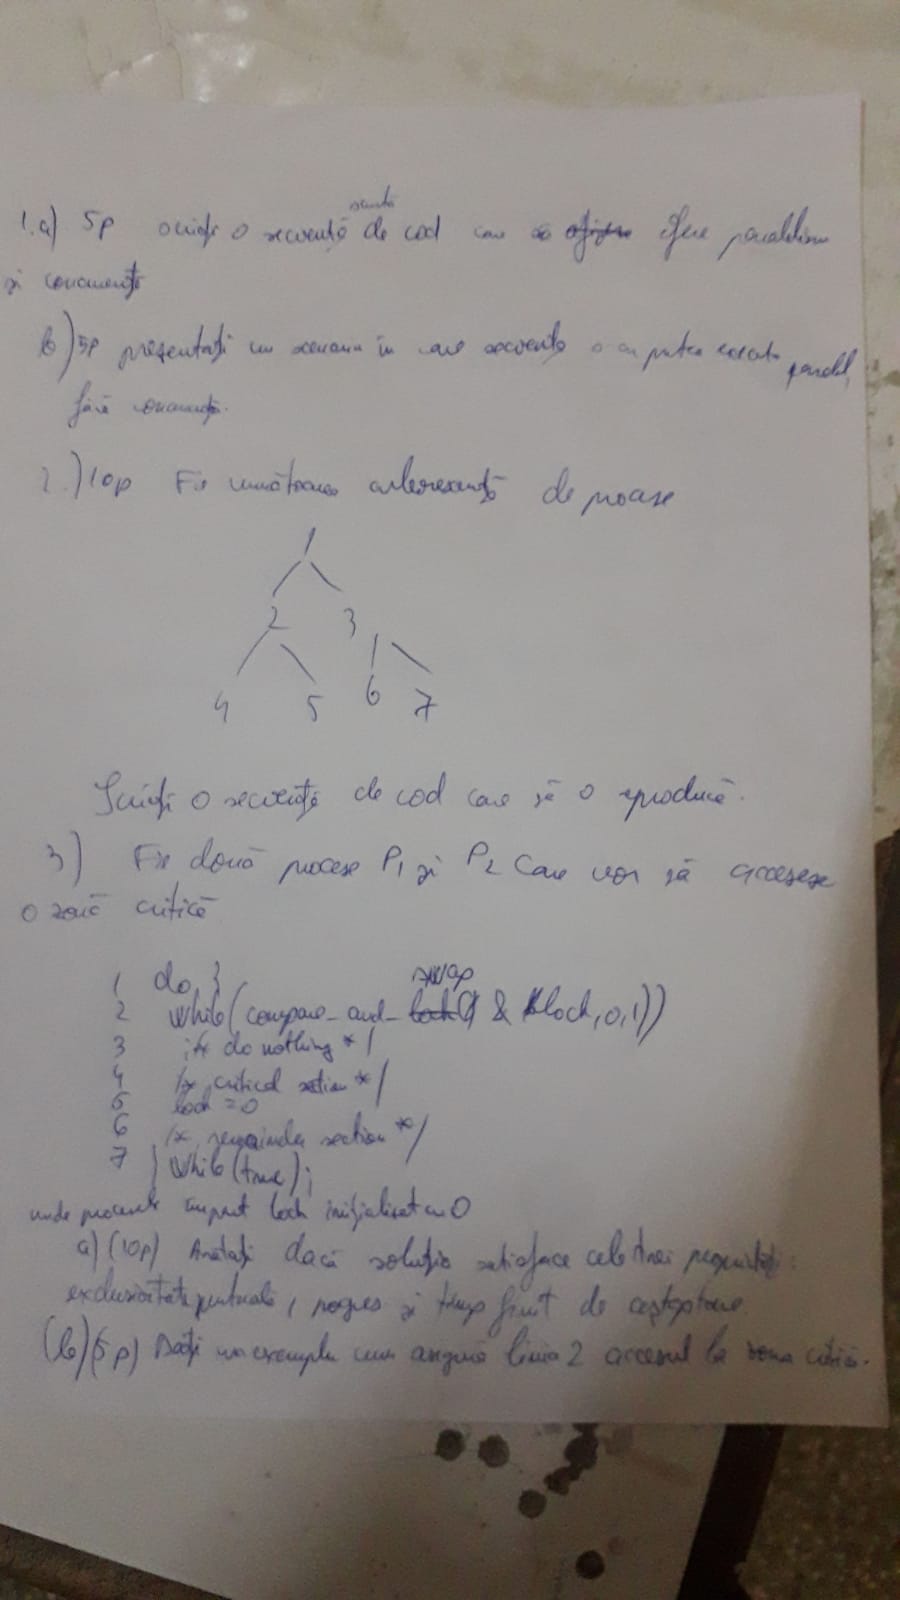 scurtă
1.a) 5p scrieți o secvență de cod care să ofere paralelism
și concurență
b) 5p prezentați un scenariu în care secvența s-ar putea executa paralel,
fără concurență.
2.) 10p Fie următoarea arborescență de procese
1
2 3
4 5 6 7
Scrieți o secvență de cod care să o reproducă.
3) Fie două procese P1 și P2 care vor să acceseze
o zonă critică
1 do {
swap
2 while (compare_and_ (& lock, 0, 1))
3 ; /* do nothing */
4 /* critical section */
5 lock = 0
6 /* remainder section */
7 } while (true);
unde procesele împart lock inițializat cu 0
a) (10p) Arătați dacă soluția satisface cele trei proprietăți:
exclusivitate mutuală, progres și timp finit de așteptare.
(b) (5p) Dați un exemplu cum asigură linia 2 accesul la zona critică.